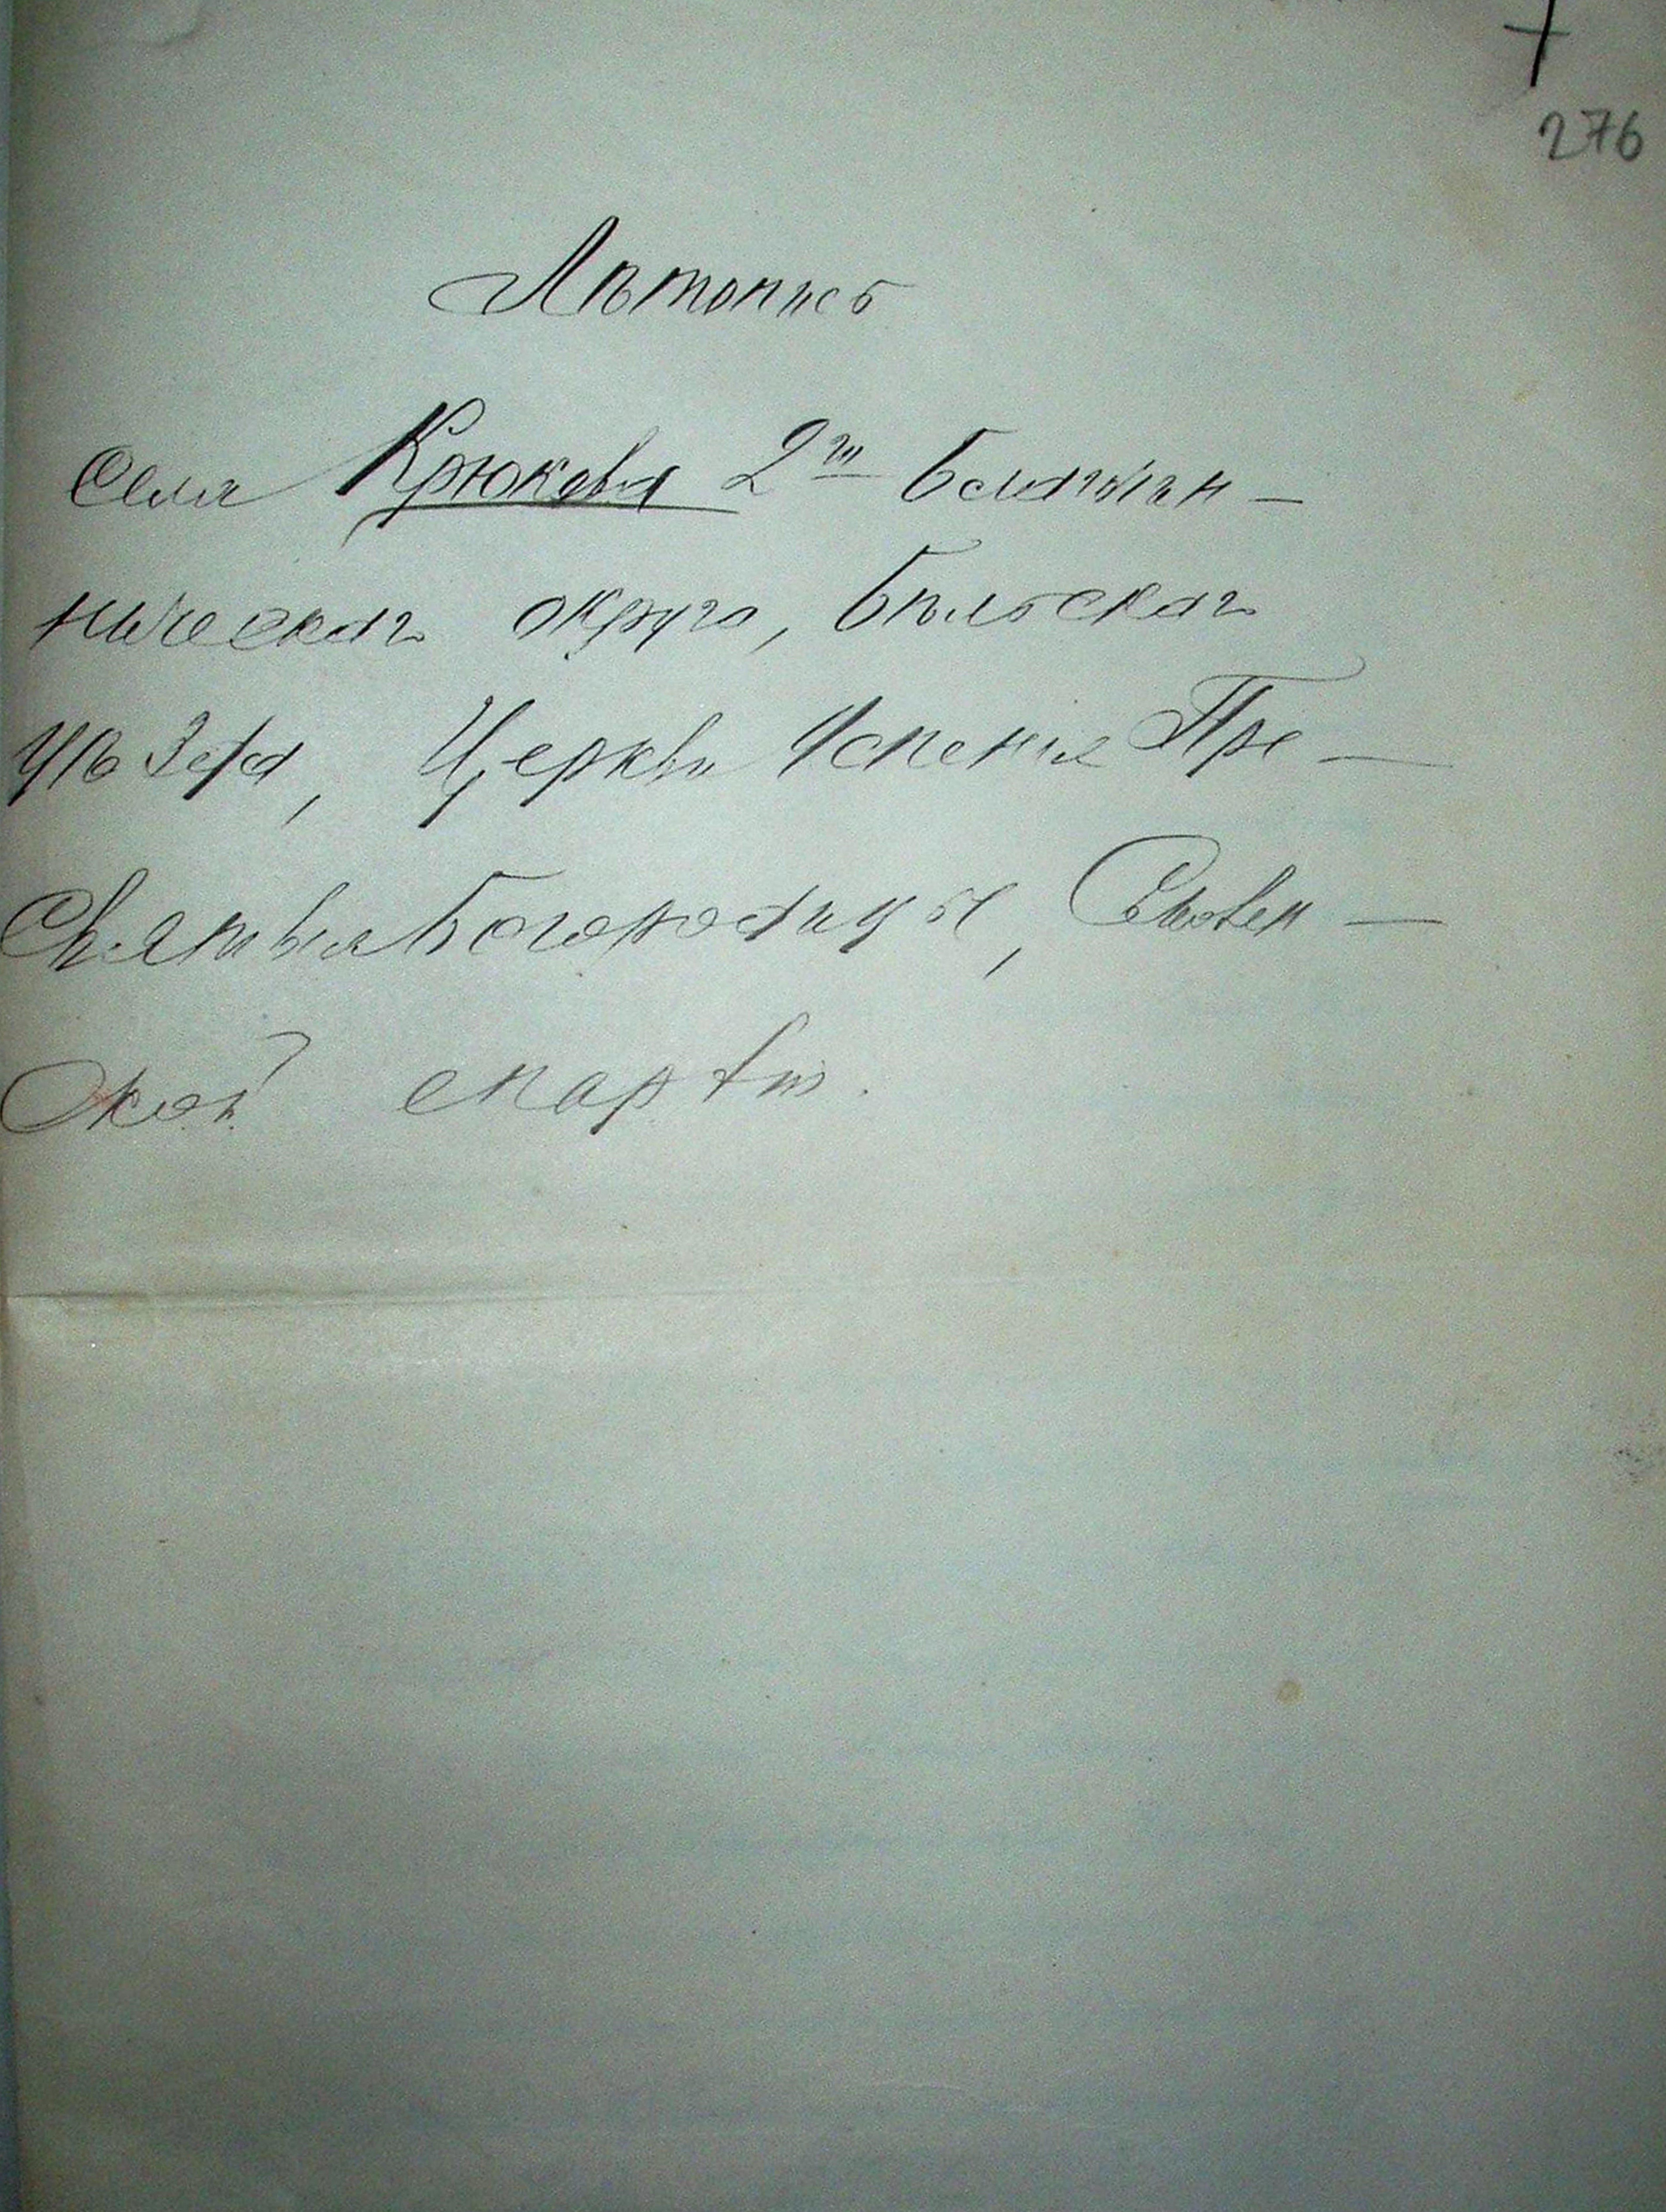 276
Лѣтопись
Села Крюкова 2го Благочин-
ническаго округа, Бѣльскаго
уѣзда, Церкви Успенія Пре-
Святыя Богородицы, Смолен-
ской епархіи.